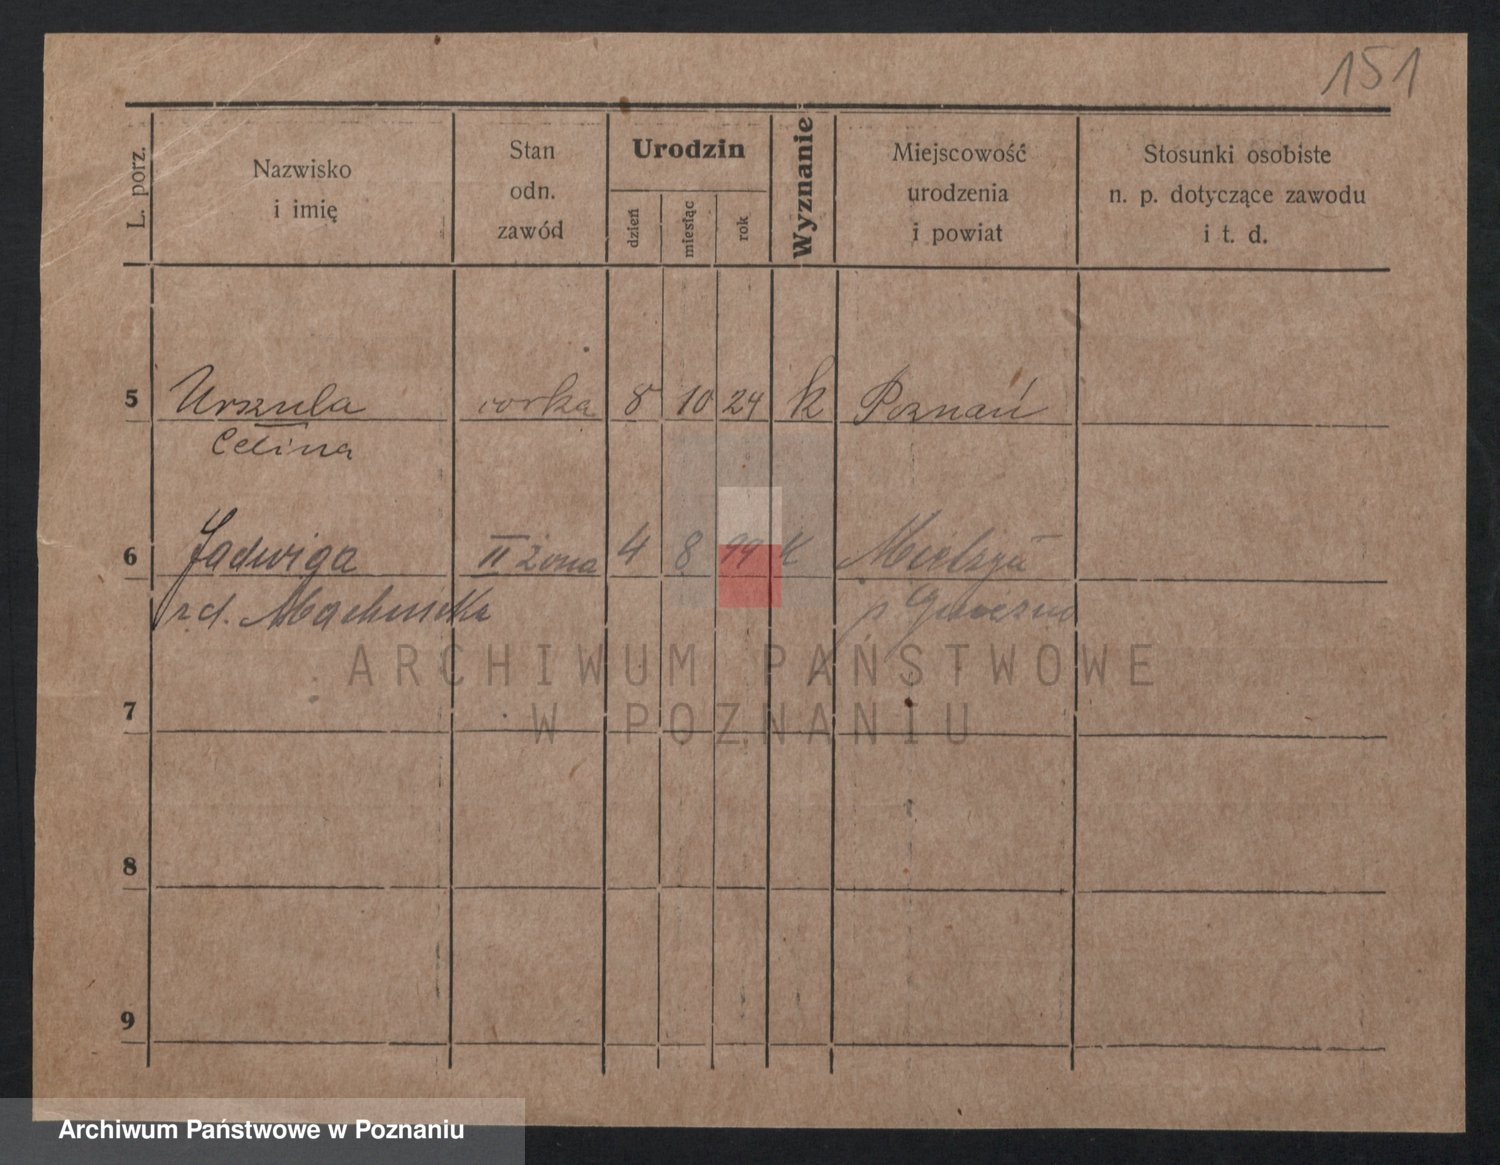 151
L. porz.
Nazwisko
i imię
Stan
odn.
zawód
Urodzin
dzień
miesiąc
rok
Wyznanie
Miejscowość
urodzenia
i powiat
Stosunki osobiste
n. p. dotyczące zawodu
i t. d.
5 Urszula corka 8 10 24 k Poznań
Celina
6 Jadwiga II żona 4 8 99 K
p Gniezno
ARCHIWUM PAŃSTWOWE
W POZNANIU
7
8
9
Archiwum Państwowe w Poznaniu